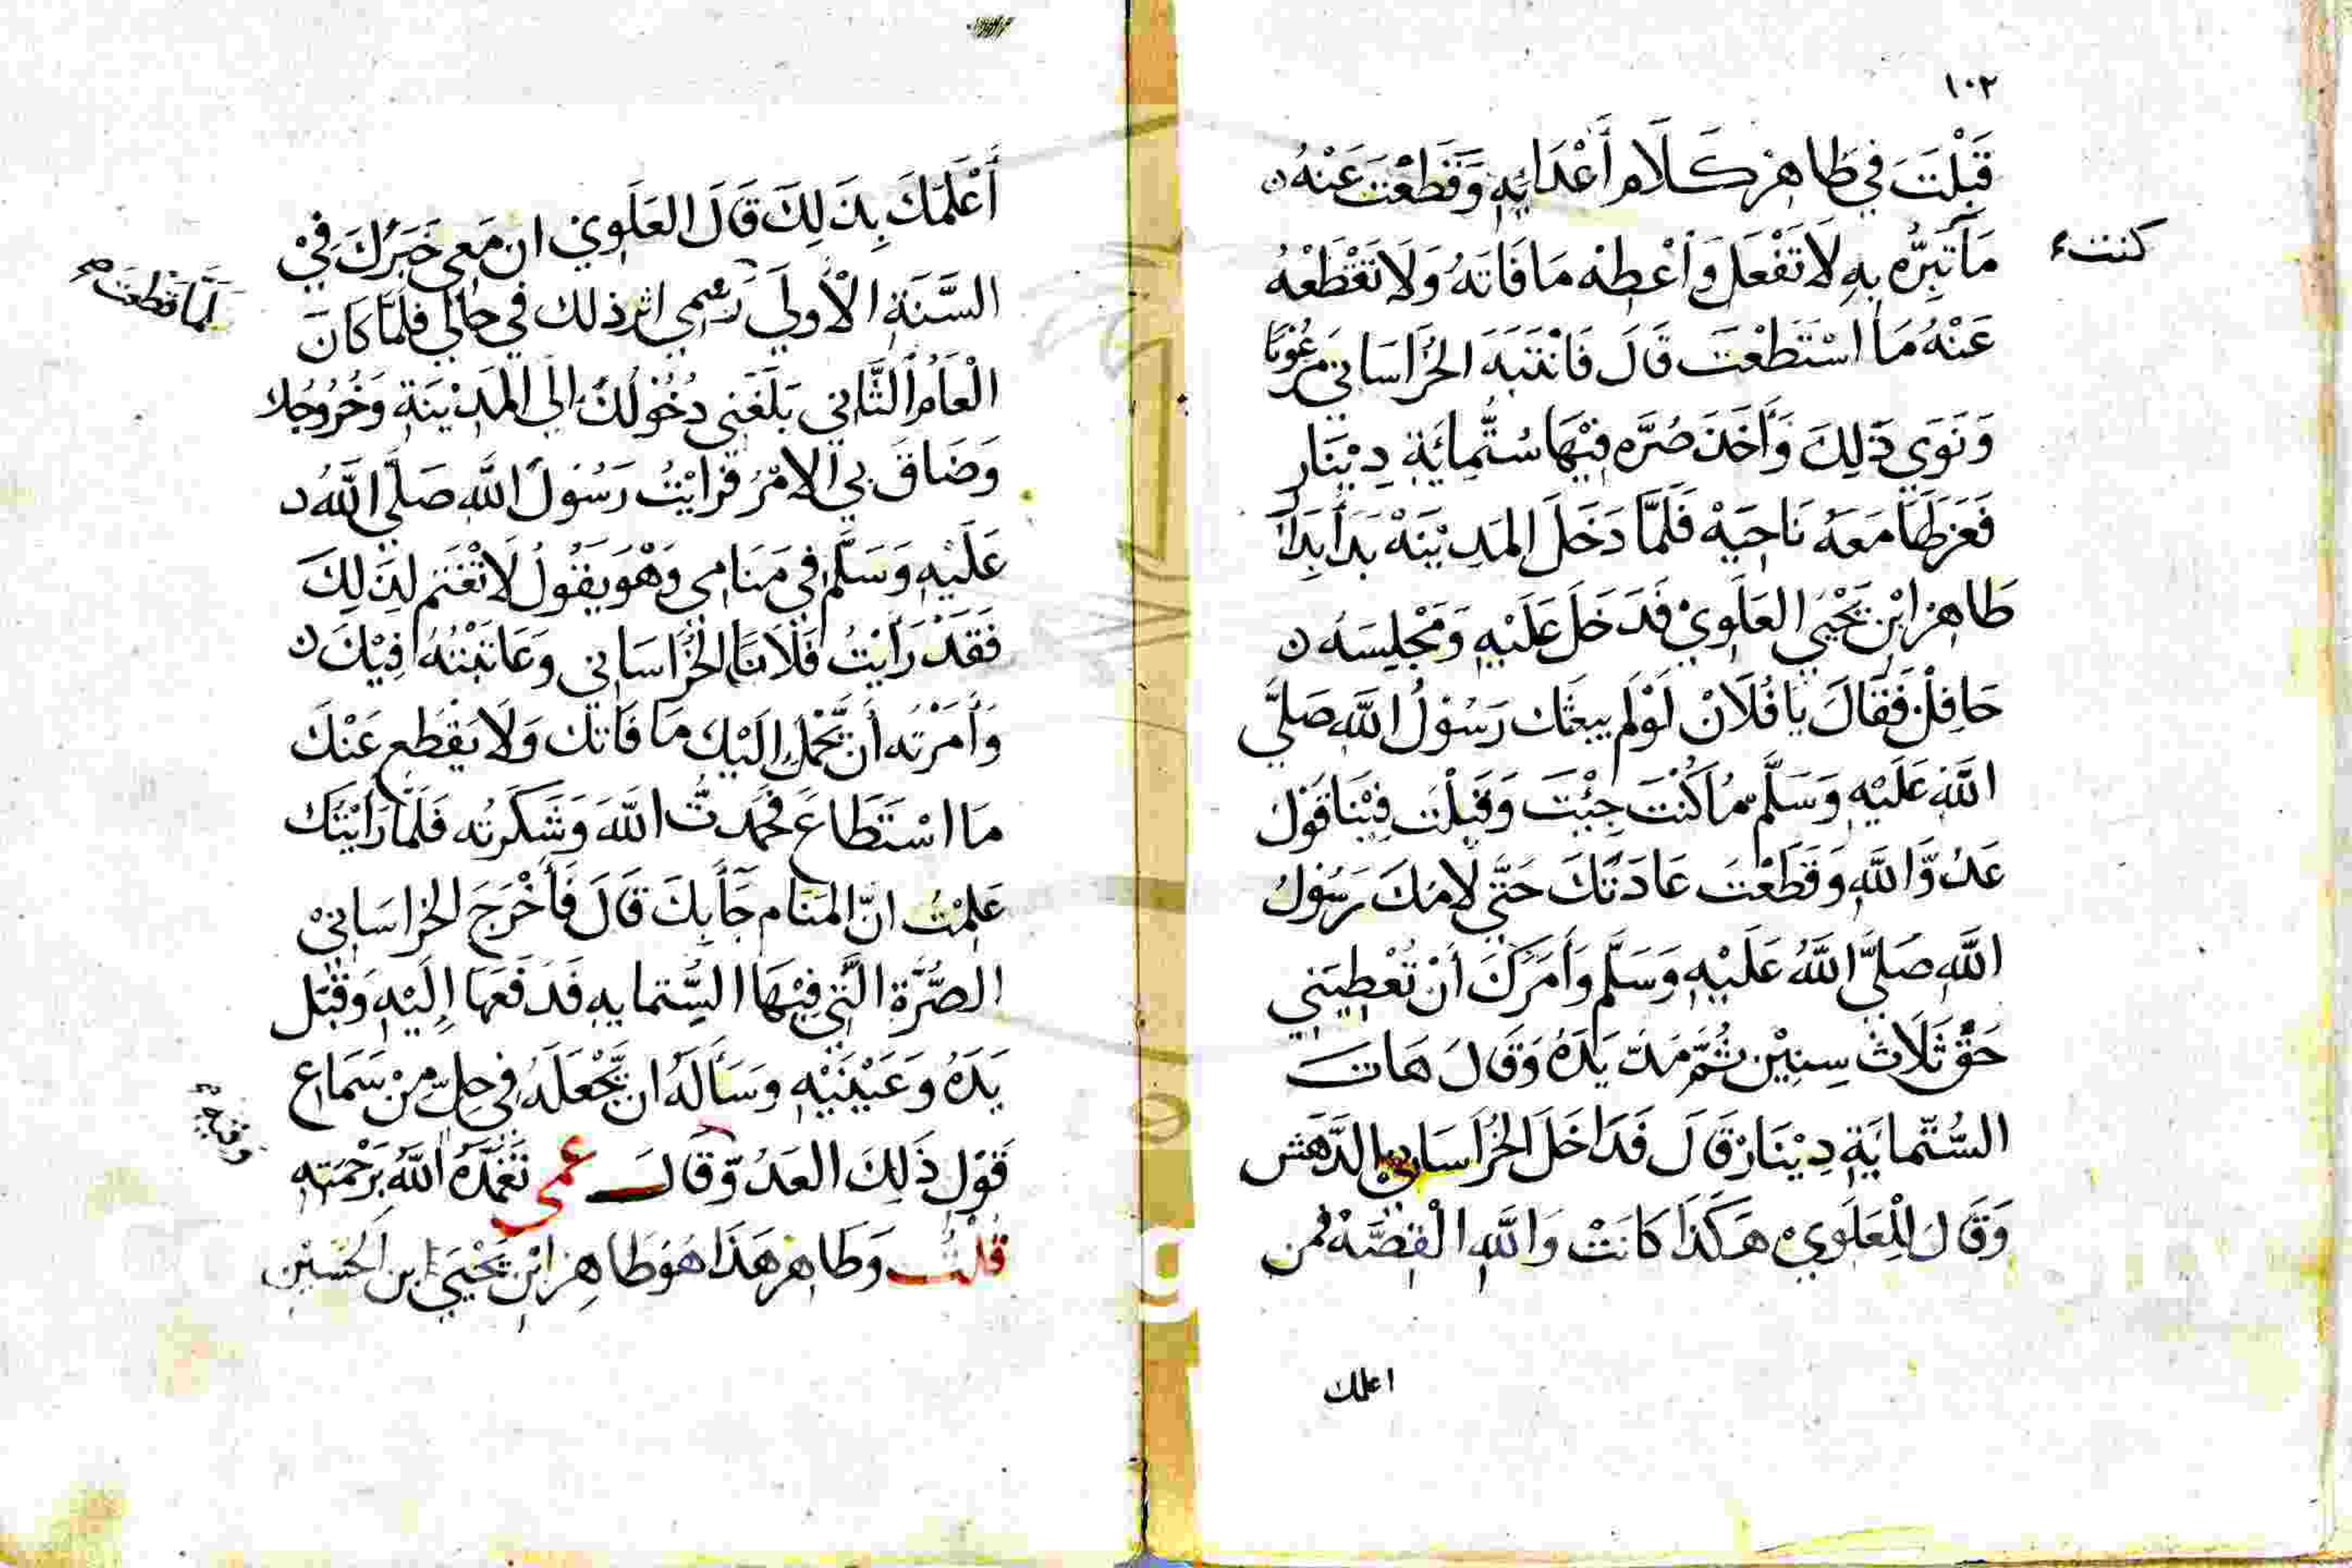 ١٠٢
قَبِلْتَ في طَاهِرْ كَلَام أَعْدَايِهِ وَقَطَعْتَ عَنْهُ
كنت
مَا تَبِرُّه بِهِ لَا تَفْعَل وَأَعْطِهْ مَا فَاتَهُ وَلَا تَقْطَعْهُ
عَنْهُ مَا اسْتَطَعْتَ قَالَ فَانْتَبَهَ الخُرَاسَاني مَرْعُوبًا
وَنَوَي ذَلِكَ وَأَخَذَ صُرَّه فِيْهَا سُتُّمِائَةِ دِيْنَار
فَعَزَلَهَا مَعَهُ نَاحِيَهْ فَلَمَّا دَخَلَ المَدِيْنَهْ بَدَأ بِدَار
طَاهِر ابْن يَحْيَي العَلَوِيْ فَدَخَلَ عَلَيْهِ وَمَجْلِسَهُ
حَافِلْ فَقَالَ يَا فُلَانْ لَوْلَم يبعثك رَسُوْلُ اللَّه صَلَّي
اللَّهُ عَلَيْهِ وَسَلَّم مَا كُنْتَ جِئْتَ وَقَبِلْتَ فِيْنَا قَوْلَ
عَدُوَّ اللَّهِ وَقَطَعْتَ عَادَتَكَ حَتَّي لَامَكَ رَسُوْلُ
اللَّهِ صَلَّي اللَّهُ عَلَيْهِ وَسَلَّم وَأَمَرَكَ أَنْ تُعْطِيَنِي
حَقَّ ثَلَاثَ سِنِيْن ثُمَّ مَدَّ يَدَهُ وَقَالَ هَات
السُّتّمايَةِ دِيْنَار قَالَ فَدَاخَلَ الخُرَاسَاني الدَّهَش
وَقَالَ لِلْعَلَوِيْ هَكَذَا كَانَتْ وَاللَّهِ الْقِصَّهْ فمن
اعلمك
أَعْلَمَكَ بِذَلِكَ قَالَ العَلَوِي ان مَعِي خَبَرُكَ فِيْ
السَّنَةِ الْأُولَي رَسْمِي اثر ذلك في حَالي فلَمَّا كَانَ
لَمَّا قَطَعْتَ
الْعَامُ الثَّانِي بَلَغَنِي دُخُوْلُكَ إِلَي المَدِيْنَةِ وَخُرُوجك
وَضَاقَ بِي الامْرُ فَرَايْتُ رَسُوْلَ اللَّهِ صَلَّي اللَّهُ
عَلَيْهِ وَسَلَّم في مَنَامِي وَهُوَ يَقُولُ لَا تَغْتَم لِذَلِكَ
فَقَدْ رَأَيْتُ فُلَانًا الخُرَاسَاني وَعَاتَبْتُهُ فِيْكَ
وَأَمَرْتُه أَنْ يَحْمِل إِلَيْك مَا فَاتَك وَلَا يَقْطَع عَنْكَ
مَا اسْتَطَاعَ فَحَمَدتُ اللَّهَ وَشَكَرْتُه فَلَمَّا رَأَيْتُكَ
عَلِمْتُ انَّ المَنَام جَآ بِكَ قَالَ فَأَخْرَجَ الخراسَانِيْ
الصُّرَّةِ الَّتِي فِيْهَا السُّتمايه فَدَفَعَهَا إِلَيْهِ وَقَبَّل
يَدَهُ وَعَيْنَيْهِ وَسَأَلَهُ ان يَجْعَلَهُ في حِلّ مِنْ سَمَاع
قَوْلِ ذَلِكَ العَدُوّ وَقَالَ عمي تَغَمَّدَهُ اللَّهُ بِرَحْمَتِهِ
قُلْتُ وَطَاهِر هَذَا هُوَ طَاهِر ابْن يَحْيَي ابن الحُسَيْن